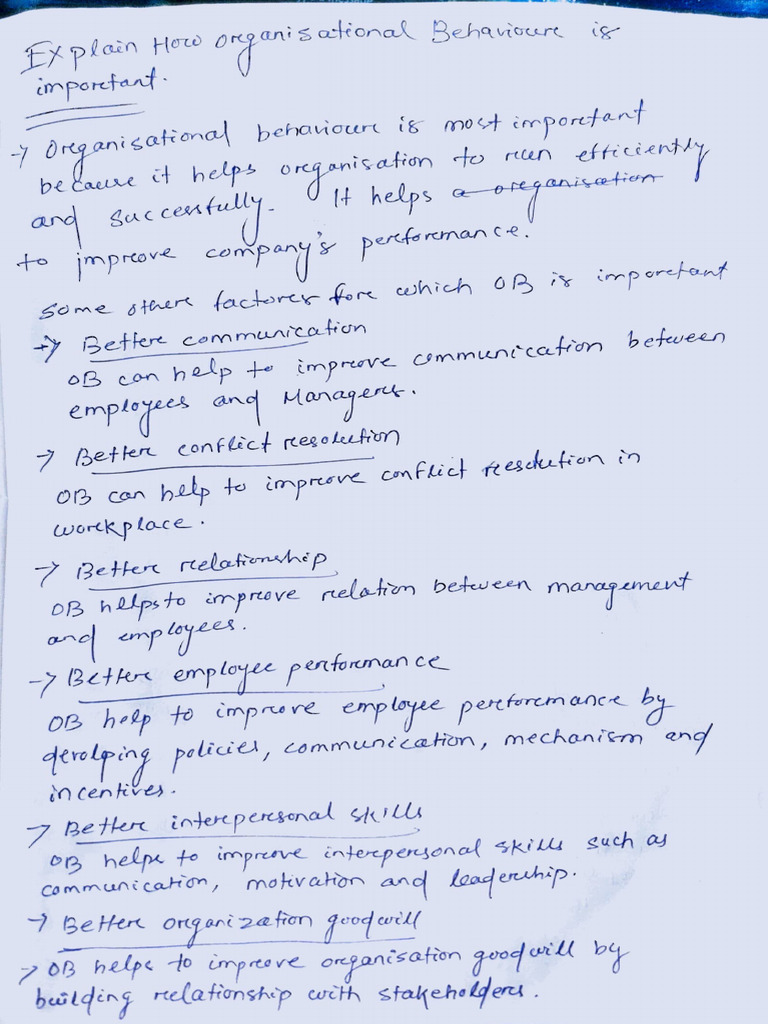 Explain How organisational Behaviour is
important.
→ Organisational behaviour is most important
because it helps organisation to run efficiently
and successfully. It helps a organisation
to improve company's performance.
some other factores for which OB is important
→ Better communication
OB can help to improve communication between
employees and Managers.
→ Better conflict resolution
OB can help to improve conflict resolution in
workplace.
→ Better relationship
OB helps to improve relation between management
and employees.
→ Better employee performance
OB help to improve employee performance by
devolping policies, communication, mechanism and
incentives.
→ Better interpersonal skills
OB helps to improve interpersonal skills such as
communication, motivation and leadership.
→ Better organization goodwill
→ OB helps to improve organisation goodwill by
building relationship with stakeholders.